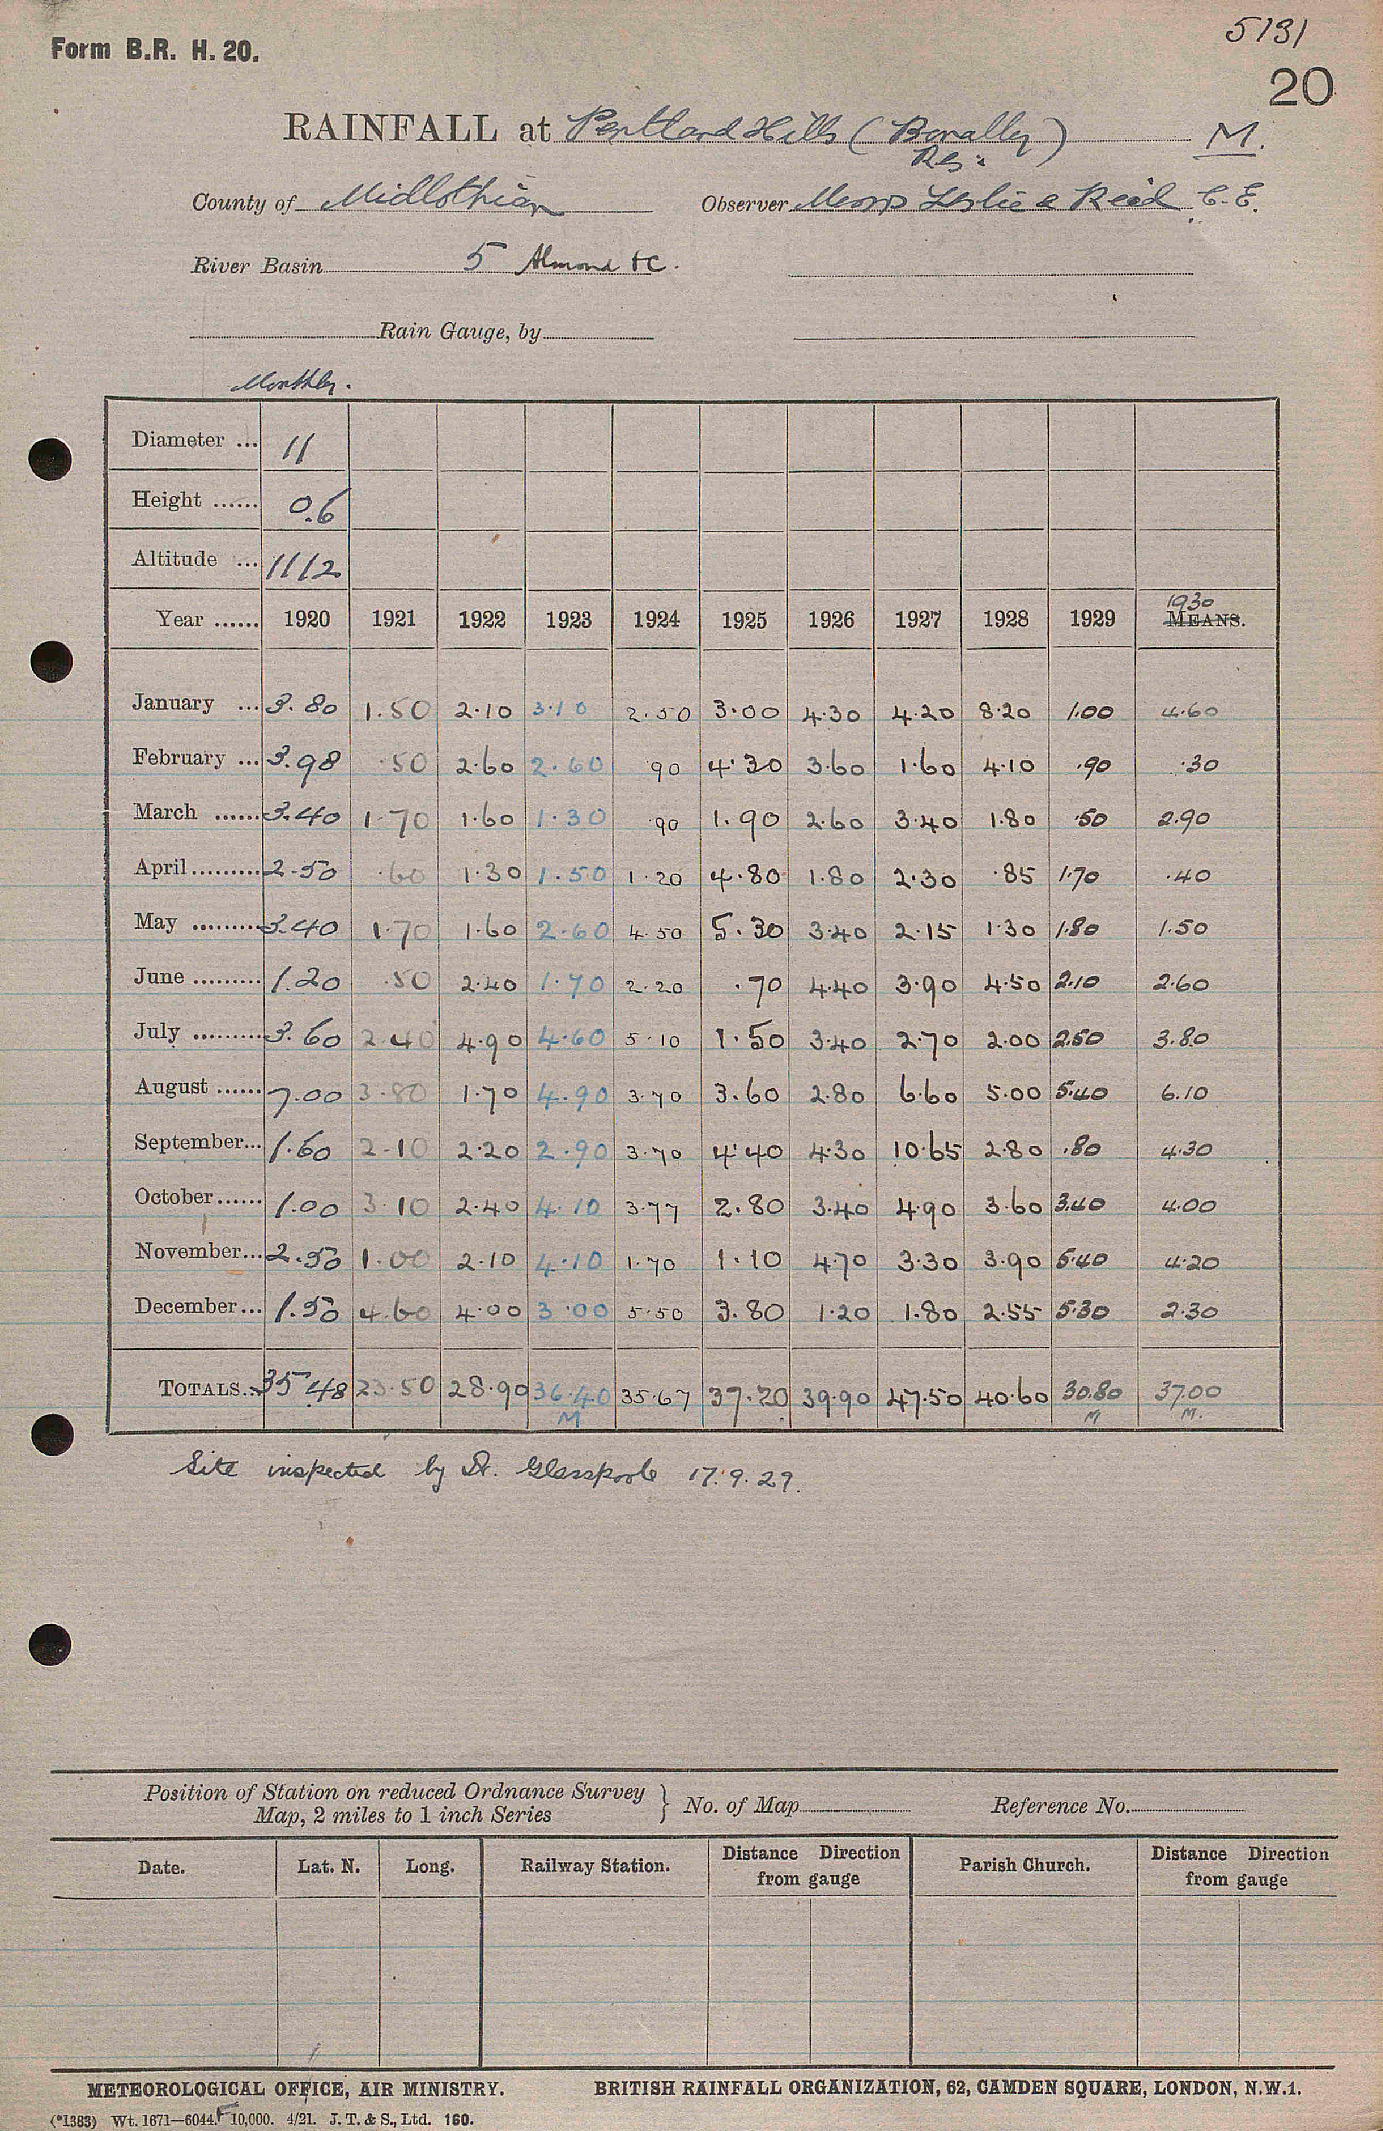 5131
Form B.R. H. 20.
20
RAINFALL at Pentland Hills (Bonally) M.
Res:
County of Midlothian Observer Messrs Leslie & Reid C.E.
River Basin 5 Almond &c.
Rain Gauge, by
Monthly.
Diameter ... 11
Height ...... 0.6
Altitude ... 1112
1930
Year ...... 1920 1921 1922 1923 1924 1925 1926 1927 1928 1929 MEANS.
January ... 3.80 1.50 2.10 3.10 2.50 3.00 4.30 4.20 8.20 1.00 4.60
February ... 3.98 .50 2.60 2.60 .90 4.30 3.60 1.60 4.10 .90 .30
March ...... 3.40 1.70 1.60 1.30 .90 1.90 2.60 3.40 1.80 .50 2.90
April ......... 2.50 .60 1.30 1.50 1.20 4.80 1.80 2.30 .85 1.70 .40
May ......... 3.40 1.70 1.60 2.60 4.50 5.30 3.40 2.15 1.30 1.80 1.50
June ......... 1.20 .50 2.40 1.70 2.20 .70 4.40 3.90 4.50 2.10 2.60
July ......... 3.60 2.40 4.90 4.60 5.10 1.50 3.40 2.70 2.00 2.50 3.80
August ...... 7.00 3.80 1.70 4.90 3.70 3.60 2.80 6.60 5.00 5.40 6.10
September... 1.60 2.10 2.20 2.90 3.70 4.40 4.30 10.65 2.80 .80 4.30
October...... 1.00 3.10 2.40 4.10 3.77 2.80 3.40 4.90 3.60 3.40 4.00
November... 2.50 1.00 2.10 4.10 1.70 1.10 4.70 3.30 3.90 5.40 4.20
December... 1.50 4.60 4.00 3.00 5.50 3.80 1.20 1.80 2.55 5.30 2.30
TOTALS... 35.48 23.50 28.90 36.40 35.67 37.20 39.90 47.50 40.60 30.80 37.00
M M M.
Site inspected by Dr. Glasspoole 17.9.29.
Position of Station on reduced Ordnance Survey
Map, 2 miles to 1 inch Series } No. of Map Reference No.
Date. Lat. N. Long. Railway Station. Distance Direction from gauge Parish Church. Distance Direction from gauge
METEOROLOGICAL OFFICE, AIR MINISTRY. BRITISH RAINFALL ORGANIZATION, 62, CAMDEN SQUARE, LONDON, N.W.1.
(*1383) Wt. 1671—6044. 10,000. 4/21. J. T. & S., Ltd. 160.